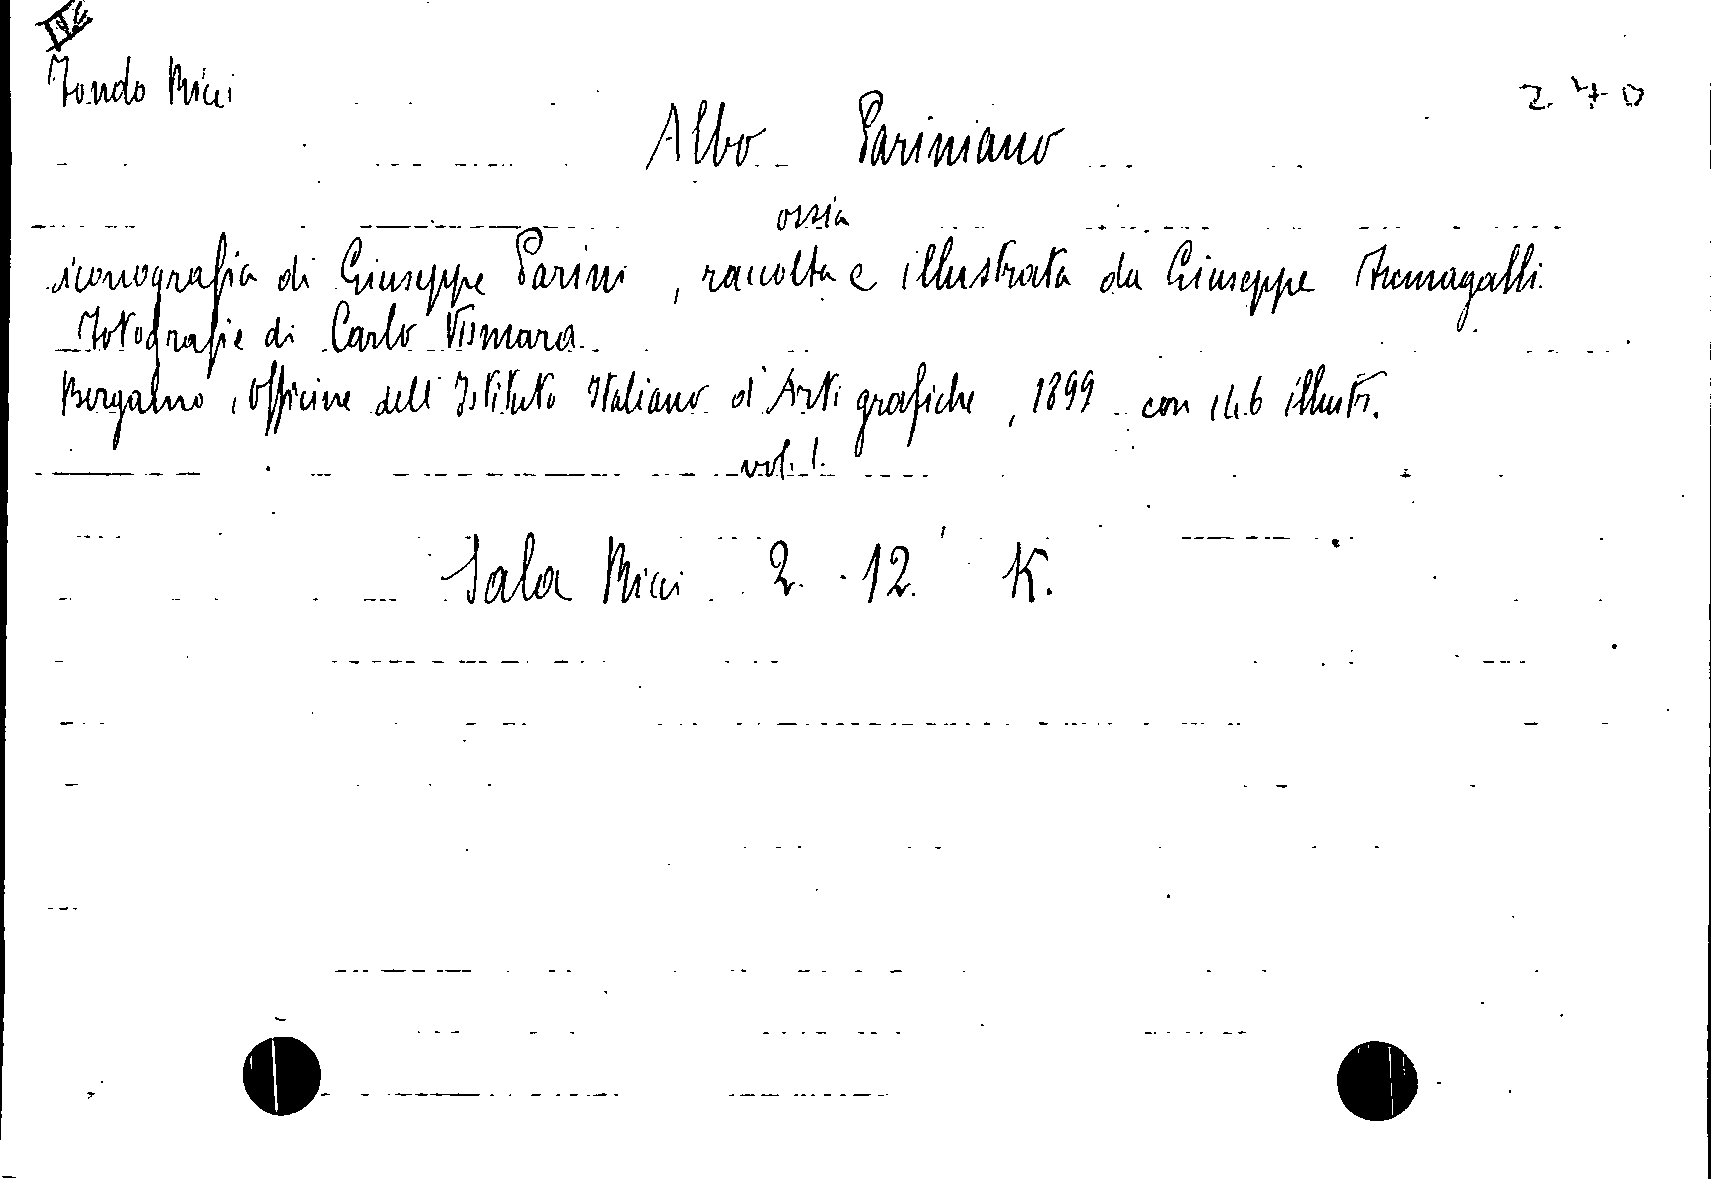 Fondo Ricci
270
Albo Pariniano
ossia
iconografia di Giuseppe Parini, raccolta e illustrata da Giuseppe Fumagalli.
Fotografie di Carlo Vismara.
Bergamo, Officine dell'Istituto Italiano d'Arti grafiche, 1899 con 146 illustr.
vol. 1.
Sala Ricci 2. 12. K.